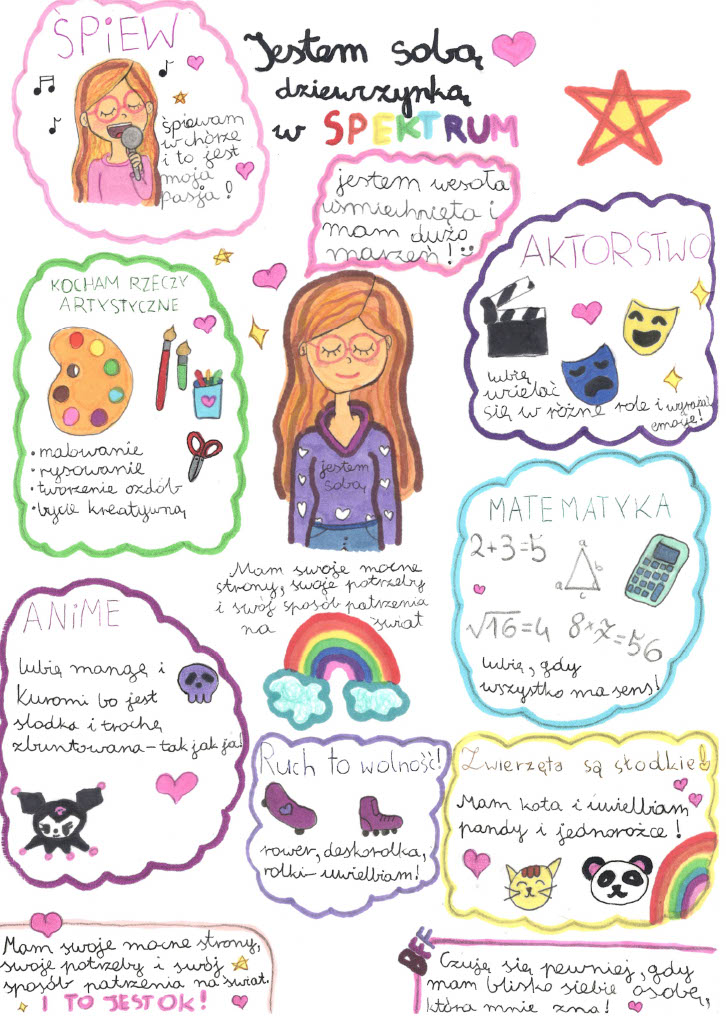 ŚPIEW
śpiewam
w chórze
i to jest
moja
pasja!
Jestem sobą
dziewczynką
w SPEKTRUM
jestem wesoła
uśmiechnięta i
mam dużo
marzeń!
KOCHAM RZECZY
ARTYSTYCZNE
• malowanie
• rysowanie
• tworzenie ozdób
• bycie kreatywną
jestem
sobą
AKTORSTWO
lubię
wcielać
się w różne role i wyrażać
emocje!
Mam swoje mocne
strony, swoje potrzeby
i swój sposób patrzenia
na świat
MATEMATYKA
2+3=5
a
b
a
c
√16=4 8×7=56
lubię, gdy
wszystko ma sens!
ANIME
lubię mangę i
Kuromi bo jest
słodka i trochę
zbuntowana-tak jak ja!
Ruch to wolność!
rower, deskorolka,
rolki-uwielbiam!
Zwierzęta są słodkie!
Mam kota i uwielbiam
pandy i jednorożce!
Mam swoje mocne strony,
swoje potrzeby i swój
sposób patrzenia na świat.
I TO JEST OK!
BFF
Czuję się pewniej, gdy
mam blisko siebie osobę,
która mnie zna!